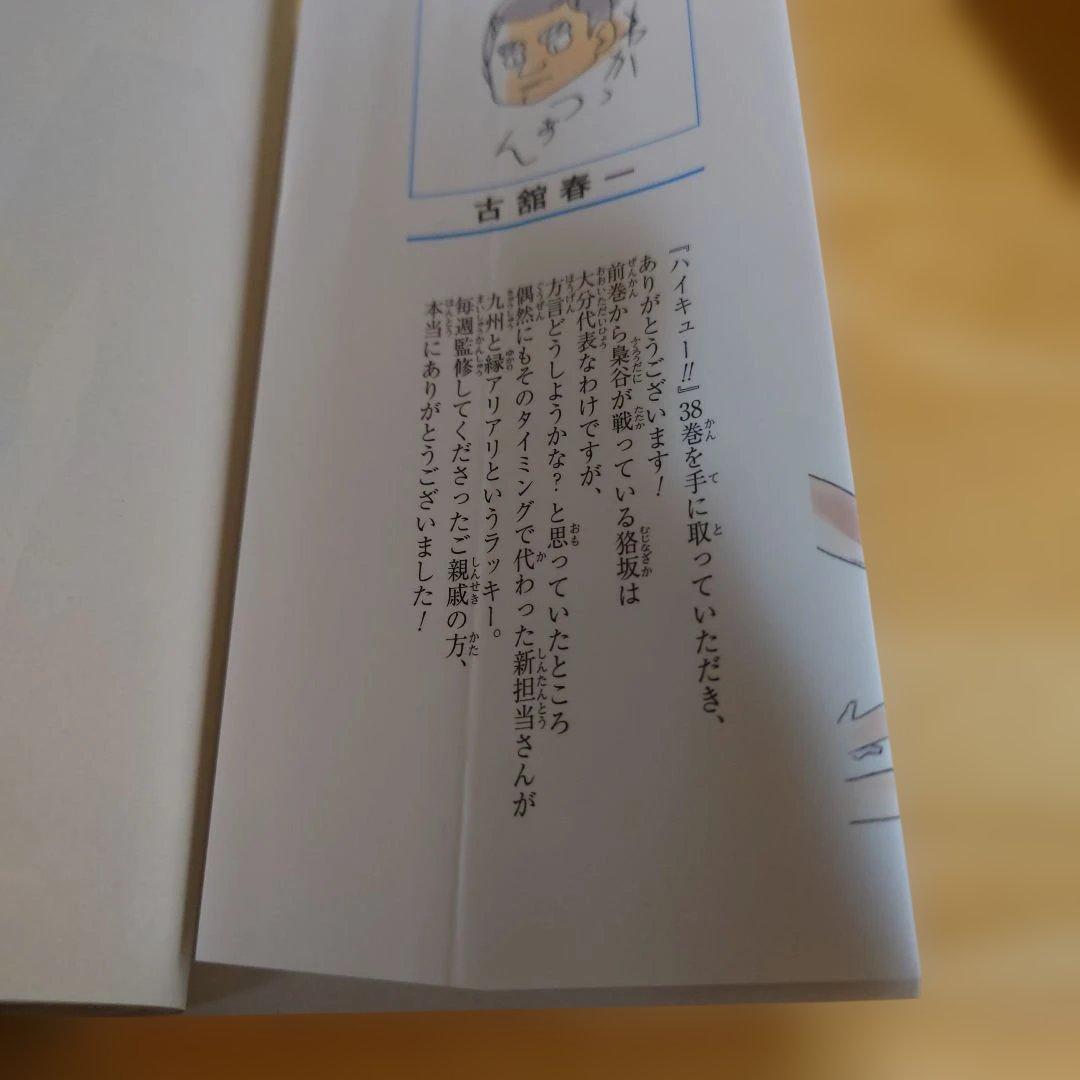 古舘春一
『ハイキュー!!』38巻を手に取っていただき、
ありがとうございます!
前巻から梟谷が戦っている狢坂は
大分代表なわけですが、
方言どうしようかな?と思っていたところ
偶然にもそのタイミングで代わった新担当さんが
九州と縁アリアリというラッキー。
毎週監修してくださったご親戚の方、
本当にありがとうございました!